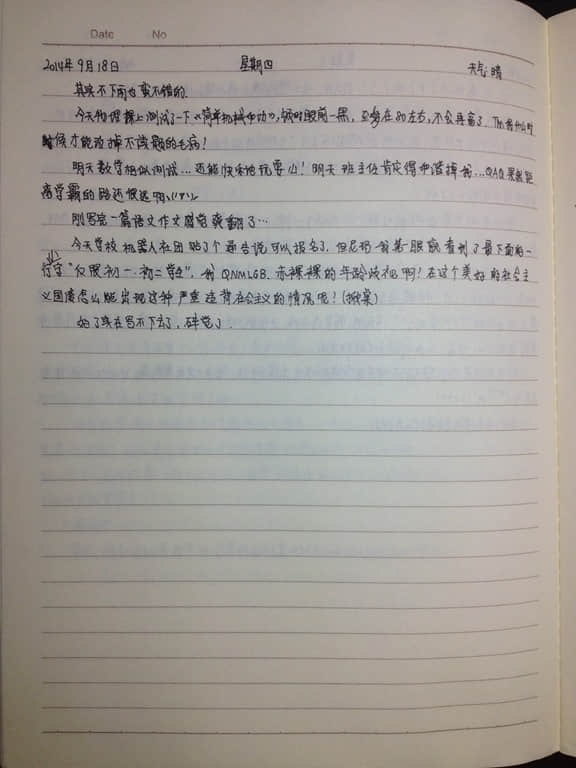 Date No
2014年9月18日 星期四 天气:晴
其实不下雨也蛮不错的.
今天物理课上测试了一下《简单机械和功》,顿时眼前一黑,在80左右,不会再高了.什么时
候才能改掉不读题的毛病!
明天数学相似测试...还能快乐地玩耍么!明天班主任肯定得和谐掉我...QAQ果然距
离学霸的路还很远啊
刚写完一篇语文作文感觉爽翻了…
今天学校机器人社团贴了个通告说可以报名了.但尼玛我第一眼就看到了最下面的一
行字"仅限初一、初二学生".我QNMLGB.赤裸裸的年龄歧视啊!在这个美好的社会主
义国度怎么能出现这种严重违背社会主义的情况呢!(掀桌)
实在写不下去了,碎觉了.